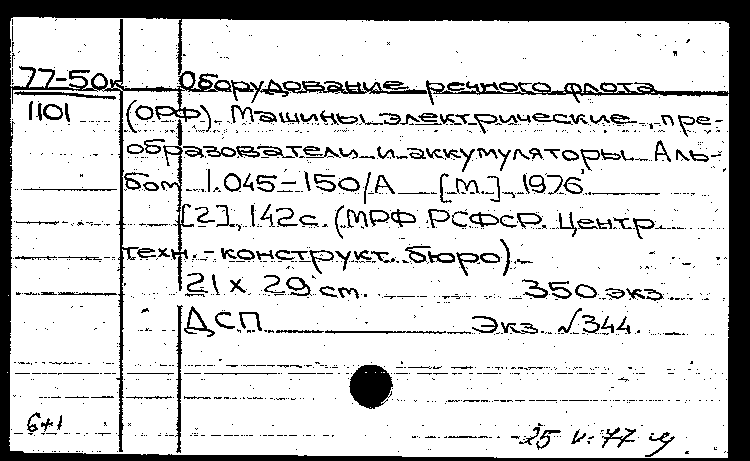 77-50к Оборудование речного флота
1101 (ОРФ). Машины электрические, пре-
образователи и аккумуляторы. Аль-
бом 1.045-150/А [М.], 1976
[2], 142с. (МРФ РСФСР. Центр.
техн.-конструкт. бюро).
21 x 29 см. 350 экз.
ДСП Экз. №344.
6+1
25 V. 77